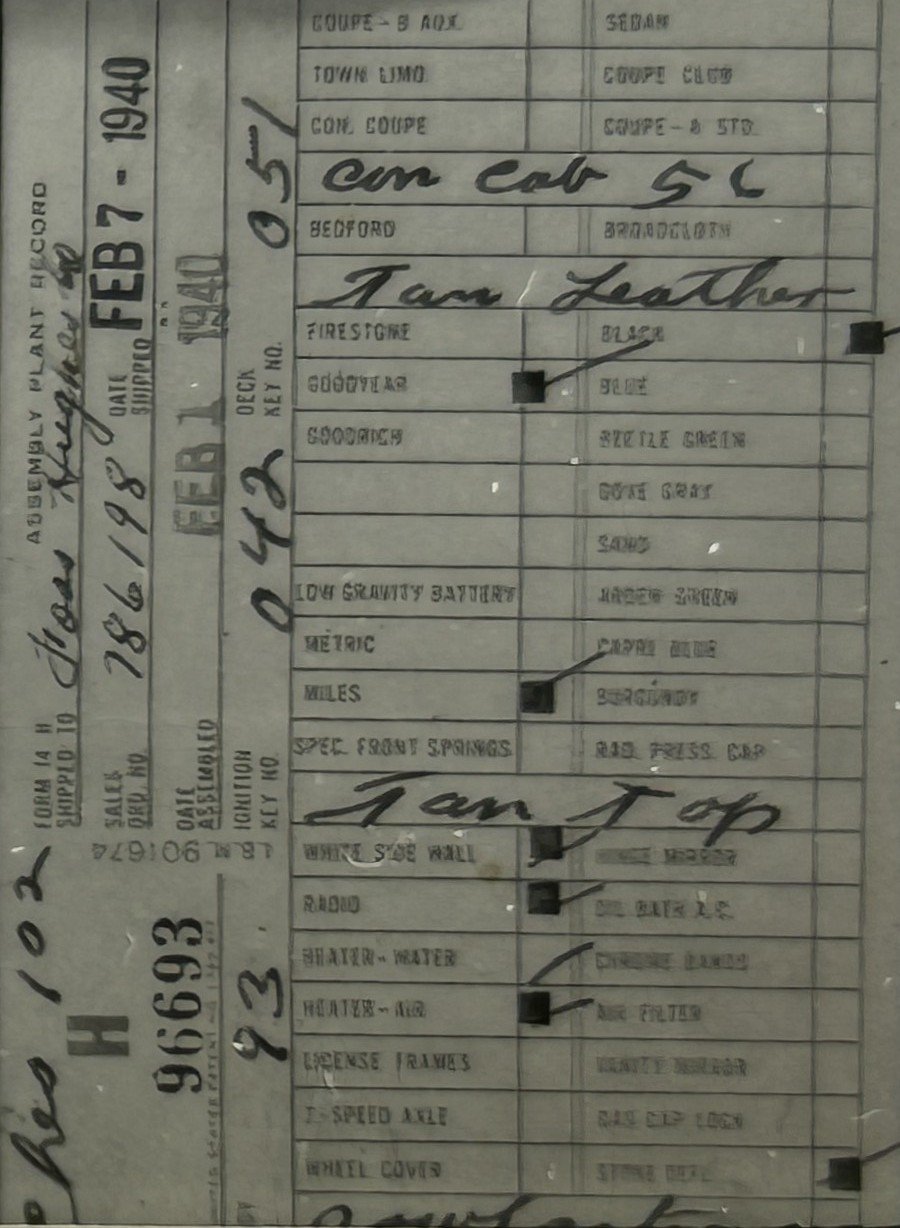 FORM 14 H ASSEMBLY PLANT RECORD
SHIPPED TO Ross Hughes
SALES ORD. NO. 786198 DATE SHIPPED FEB 7 - 1940
DATE ASSEMBLED FEB 1 1940
IGNITION KEY NO. 042 DECK KEY NO. 051
102
H
96693
93
LBM 901674
COUPE - B AUX. SEDAN
TOWN LIMO. COUPE CLUB
CON. COUPE COUPE - A STD.
Con Cab 56
BEDFORD BROADCLOTH
Tan Leather
FIRESTONE BLACK
GOODYEAR BLUE
GOODRICH BEETLE GREEN
COTE GRAY
SAND
LOW GRAVITY BATTERY GREEN
METRIC CAPRI BLUE
MILES BURGUNDY
SPEC. FRONT SPRINGS RAD. PRESS. CAP
Tan Top
WHITE SIDE WALL HINGE MIRROR
RADIO OIL BATH A.C.
HEATER - WATER CHROME BANDS
HEATER - AIR AIR FILTER
LICENSE FRAMES VANITY MIRROR
2-SPEED AXLE GAS CAP LOCK
WHEEL COVER STONE DEFL.